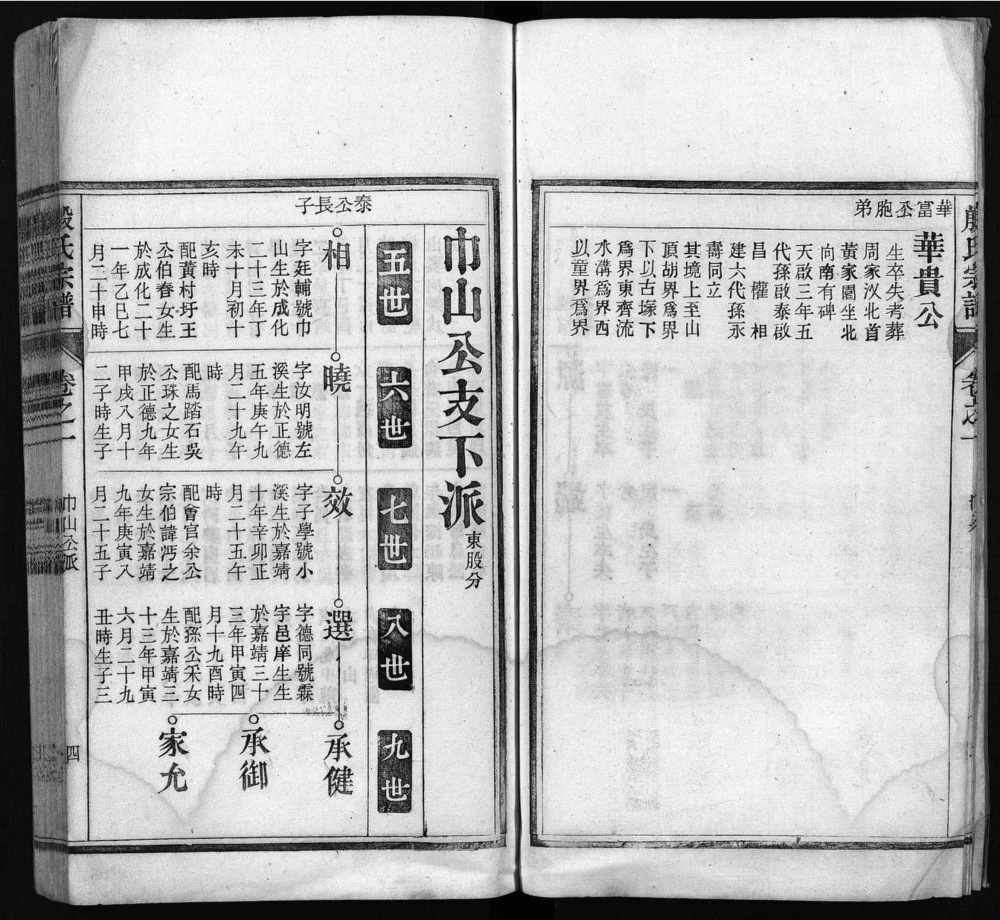 殷氏宗譜
卷之一
華富公胞弟
華貴公
生卒失考葬
周家汊北首
黃家園坐北
向南有碑
天啟三年五
代孫啟泰啟
昌　權　相
建六代孫永
壽同立
其境上至山
頂胡界為界
下以古塚下
為界東齊流
水溝為界西
以童界為界
巾山公支下派東股分
五世
六世
七世
八世
九世
泰公長子
相
字廷輔號巾
山生於成化
二十三年丁
未十月初十
亥時
配黃村圩王
公伯春女生
於成化二十
一年乙巳七
月二十申時
曉
字汝明號左
溪生於正德
五年庚午九
月二十九午
時
配馬踏石吳
公珠之女生
於正德九年
甲戌八月十
二子時生子
效
字子學號小
溪生於嘉靖
十年辛卯正
月二十五午
時
配會宮余公
宗伯諱沔之
女生於嘉靖
九年庚寅八
月二十五子
選
字德同號霖
宇邑庠生生
於嘉靖三十
三年甲寅四
月十九酉時
配孫公采女
生於嘉靖三
十三年甲寅
六月二十九
丑時生子三
承健
承御
家允
殷氏宗譜
卷之一
巾山公派
四